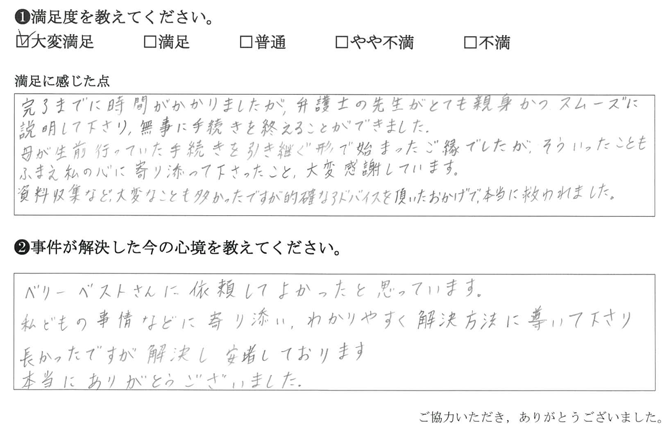 ❶満足度を教えてください。
☑大変満足 □満足 □普通 □やや不満 □不満
満足に感じた点
完了までに時間がかかりましたが、弁護士の先生がとても親身かつスムーズに
説明して下さり、無事に手続きを終えることができました。
母が生前行っていた手続きを引き継ぐ形で始まったご縁でしたが、そういったことも
ふまえ私の心に寄り添って下さったこと、大変感謝しています。
資料収集など、大変なことも多かったですが的確なアドバイスを頂いたおかげで、本当に救われました。
❷事件が解決した今の心境を教えてください。
ベリーベストさんに依頼してよかったと思っています。
私どもの事情などに寄り添い、わかりやすく解決方法に導いて下さり
長かったですが解決し安堵しております
本当にありがとうございました.
ご協力いただき，ありがとうございました。